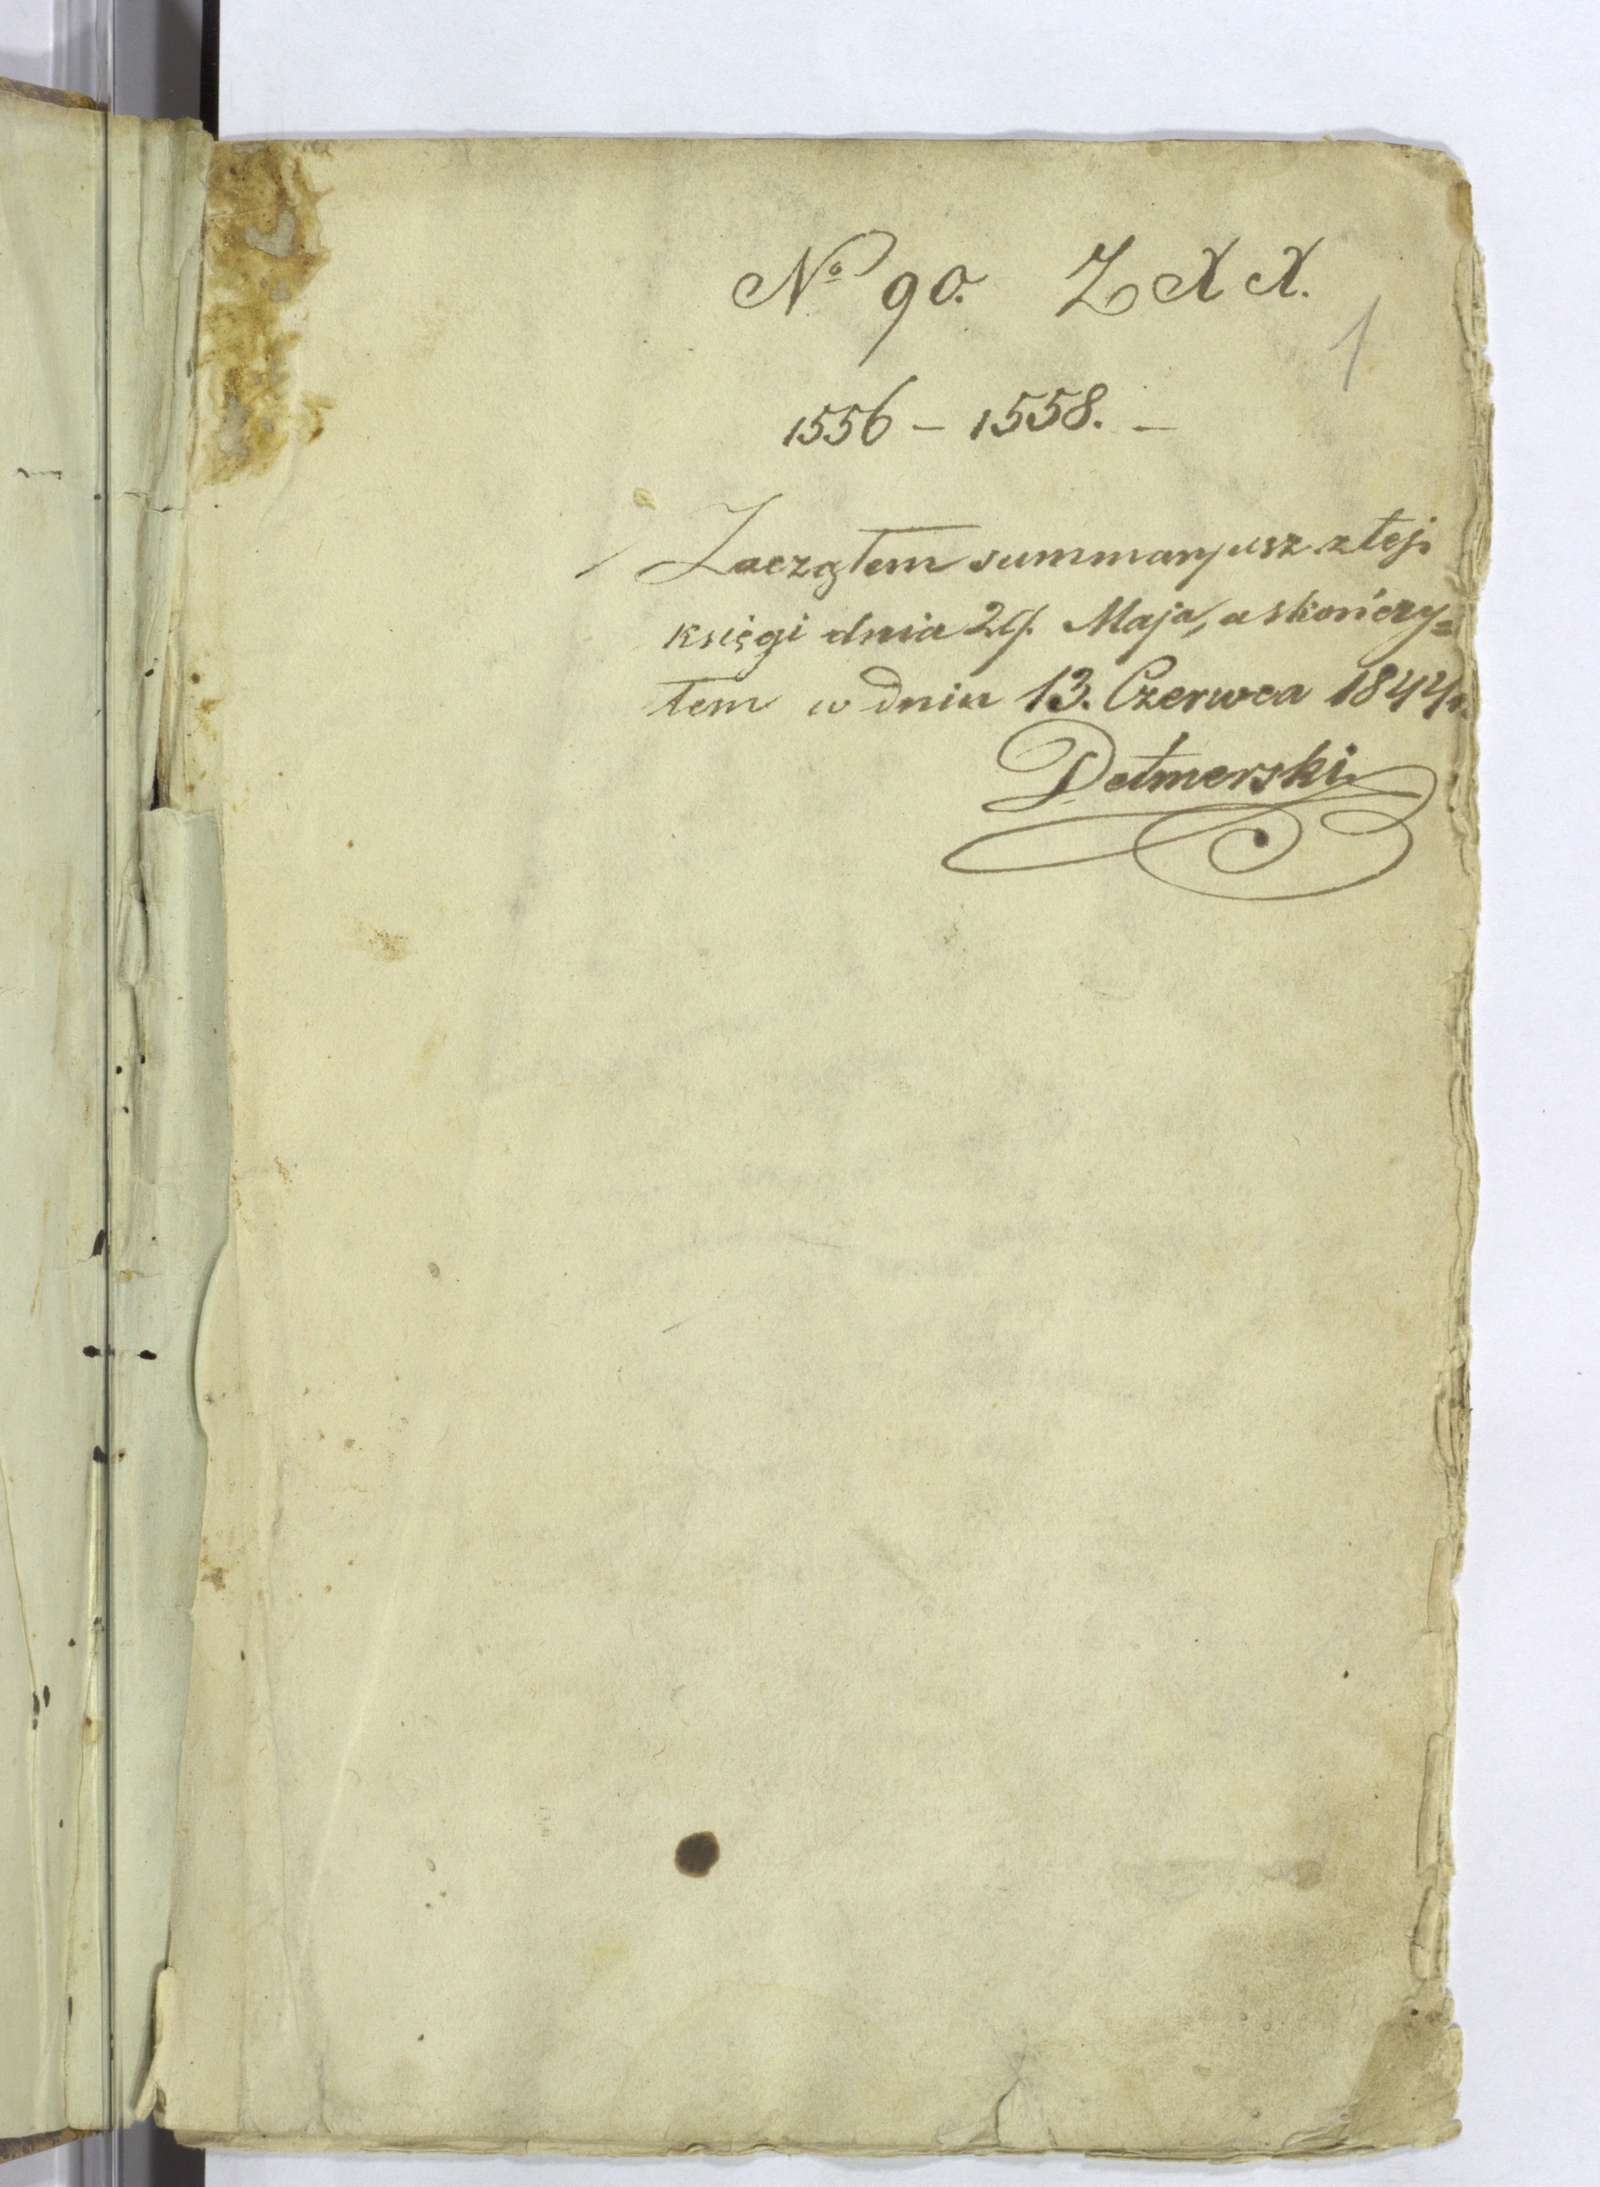 No 90. Z X X.
1
1556 – 1558. –
Zacząłem summaryusz z tej
księgi dnia Maja, a skończy=
łem w dniu 13. Czerwca 1844 r.